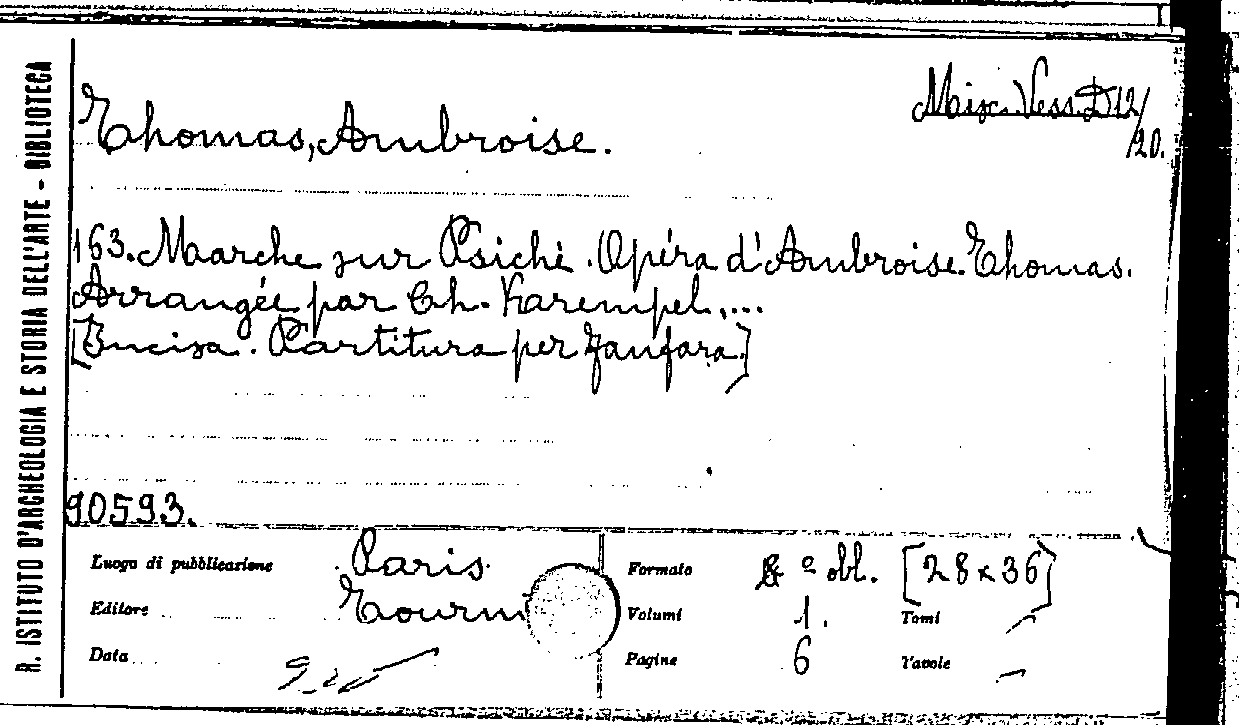 R. ISTITUTO D'ARCHEOLOGIA E STORIA DELL'ARTE - BIBLIOTECA
Misc. Vess. D 12/
20.
Thomas, Ambroise.
163. Marche sur Psichè. Opéra d'Ambroise Thomas.
Arrangée par Ch. Karempel....
[Incisa. Partitura per fanfara]
90593.
Luogo di pubblicazione Paris
Editore
Data
Formato 8º obl. [28 x 36]
Volumi 1. Tomi
Pagine 6 Tavole